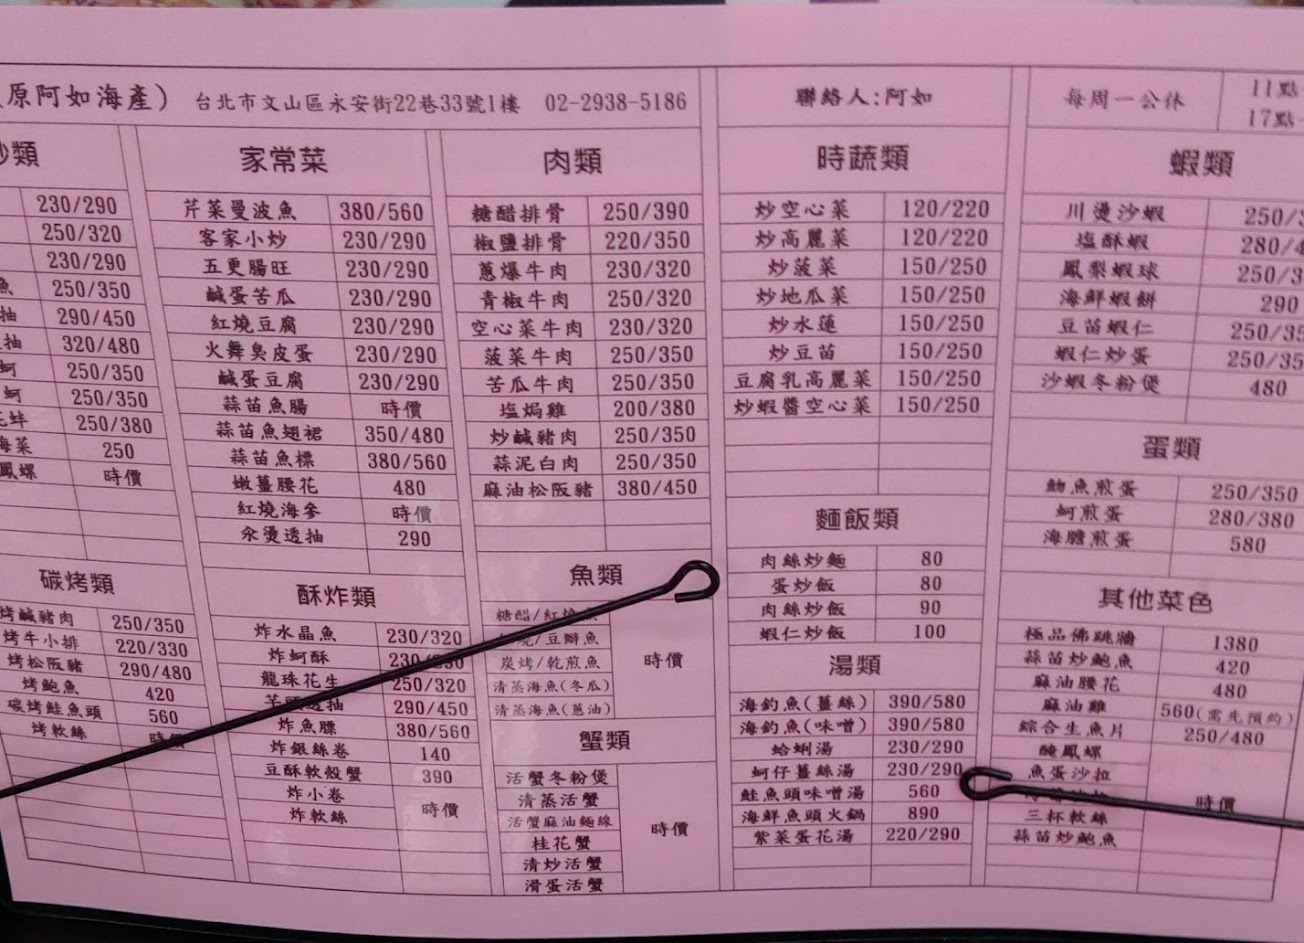 原阿如海產） 台北市文山區永安街22巷33號1樓 02-2938-5186
聯絡人:阿如
每周一公休
11點
17點
類
230/290
250/320
230/290
魚 250/350
抽 290/450
抽 320/480
蚵 250/350
蚵 250/350
蚌 250/380
海菜 250
鳳螺 時價
碳烤類
烤鹹豬肉 250/350
烤牛小排 220/330
烤松阪豬 290/480
烤鮑魚 420
碳烤鮭魚頭 560
烤軟絲 時價
家常菜
芹菜曼波魚 380/560
客家小炒 230/290
五更腸旺 230/290
鹹蛋苦瓜 230/290
紅燒豆腐 230/290
火舞臭皮蛋 230/290
鹹蛋豆腐 230/290
蒜苗魚腸 時價
蒜苗魚翅裙 350/480
蒜苗魚標 380/560
嫩薑腰花 480
紅燒海參 時價
氽燙透抽 290
酥炸類
炸水晶魚 230/320
炸蚵酥
龍珠花生 250/320
透抽 290/450
炸魚膘 380/560
炸銀絲卷 140
豆酥軟殼蟹 390
炸小卷
炸軟絲
時價
肉類
糖醋排骨 250/390
椒鹽排骨 220/350
蔥爆牛肉 230/320
青椒牛肉 250/320
空心菜牛肉 230/320
菠菜牛肉 250/350
苦瓜牛肉 250/350
塩焗雞 200/380
炒鹹豬肉 250/350
蒜泥白肉 250/350
麻油松阪豬 380/450
魚類
糖醋/紅燒
/豆瓣魚
炭烤/乾煎魚
清蒸海魚(冬瓜)
清蒸海魚(蔥油)
時價
蟹類
活蟹冬粉煲
清蒸活蟹
活蟹麻油麵線
桂花蟹
清炒活蟹
滑蛋活蟹
時價
時蔬類
炒空心菜 120/220
炒高麗菜 120/220
炒菠菜 150/250
炒地瓜菜 150/250
炒水蓮 150/250
炒豆苗 150/250
豆腐乳高麗菜 150/250
炒蝦醬空心菜 150/250
麵飯類
肉絲炒麵 80
蛋炒飯 80
肉絲炒飯 90
蝦仁炒飯 100
湯類
海釣魚(薑絲) 390/580
海釣魚(味噌) 390/580
蛤蜊湯 230/290
蚵仔薑絲湯 230/290
鮭魚頭味噌湯 560
海鮮魚頭火鍋 890
紫菜蛋花湯 220/290
蝦類
川燙沙蝦 250/3
塩酥蝦 280/4
鳳梨蝦球 250/3
海鮮蝦餅 290
豆苗蝦仁 250/35
蝦仁炒蛋 250/35
沙蝦冬粉煲 480
蛋類
魩魚煎蛋 250/350
蚵煎蛋 280/380
海膽煎蛋 580
其他菜色
極品佛跳牆 1380
蒜苗炒鮑魚 420
麻油腰花 480
麻油雞 560(需先預約)
綜合生魚片 250/480
醃鳳螺
魚蛋沙拉
三杯軟絲
蒜苗炒鮑魚
時價